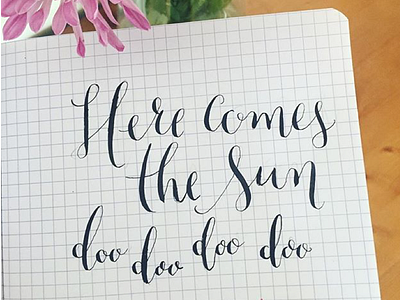 Here comes
the sun
doo doo doo doo